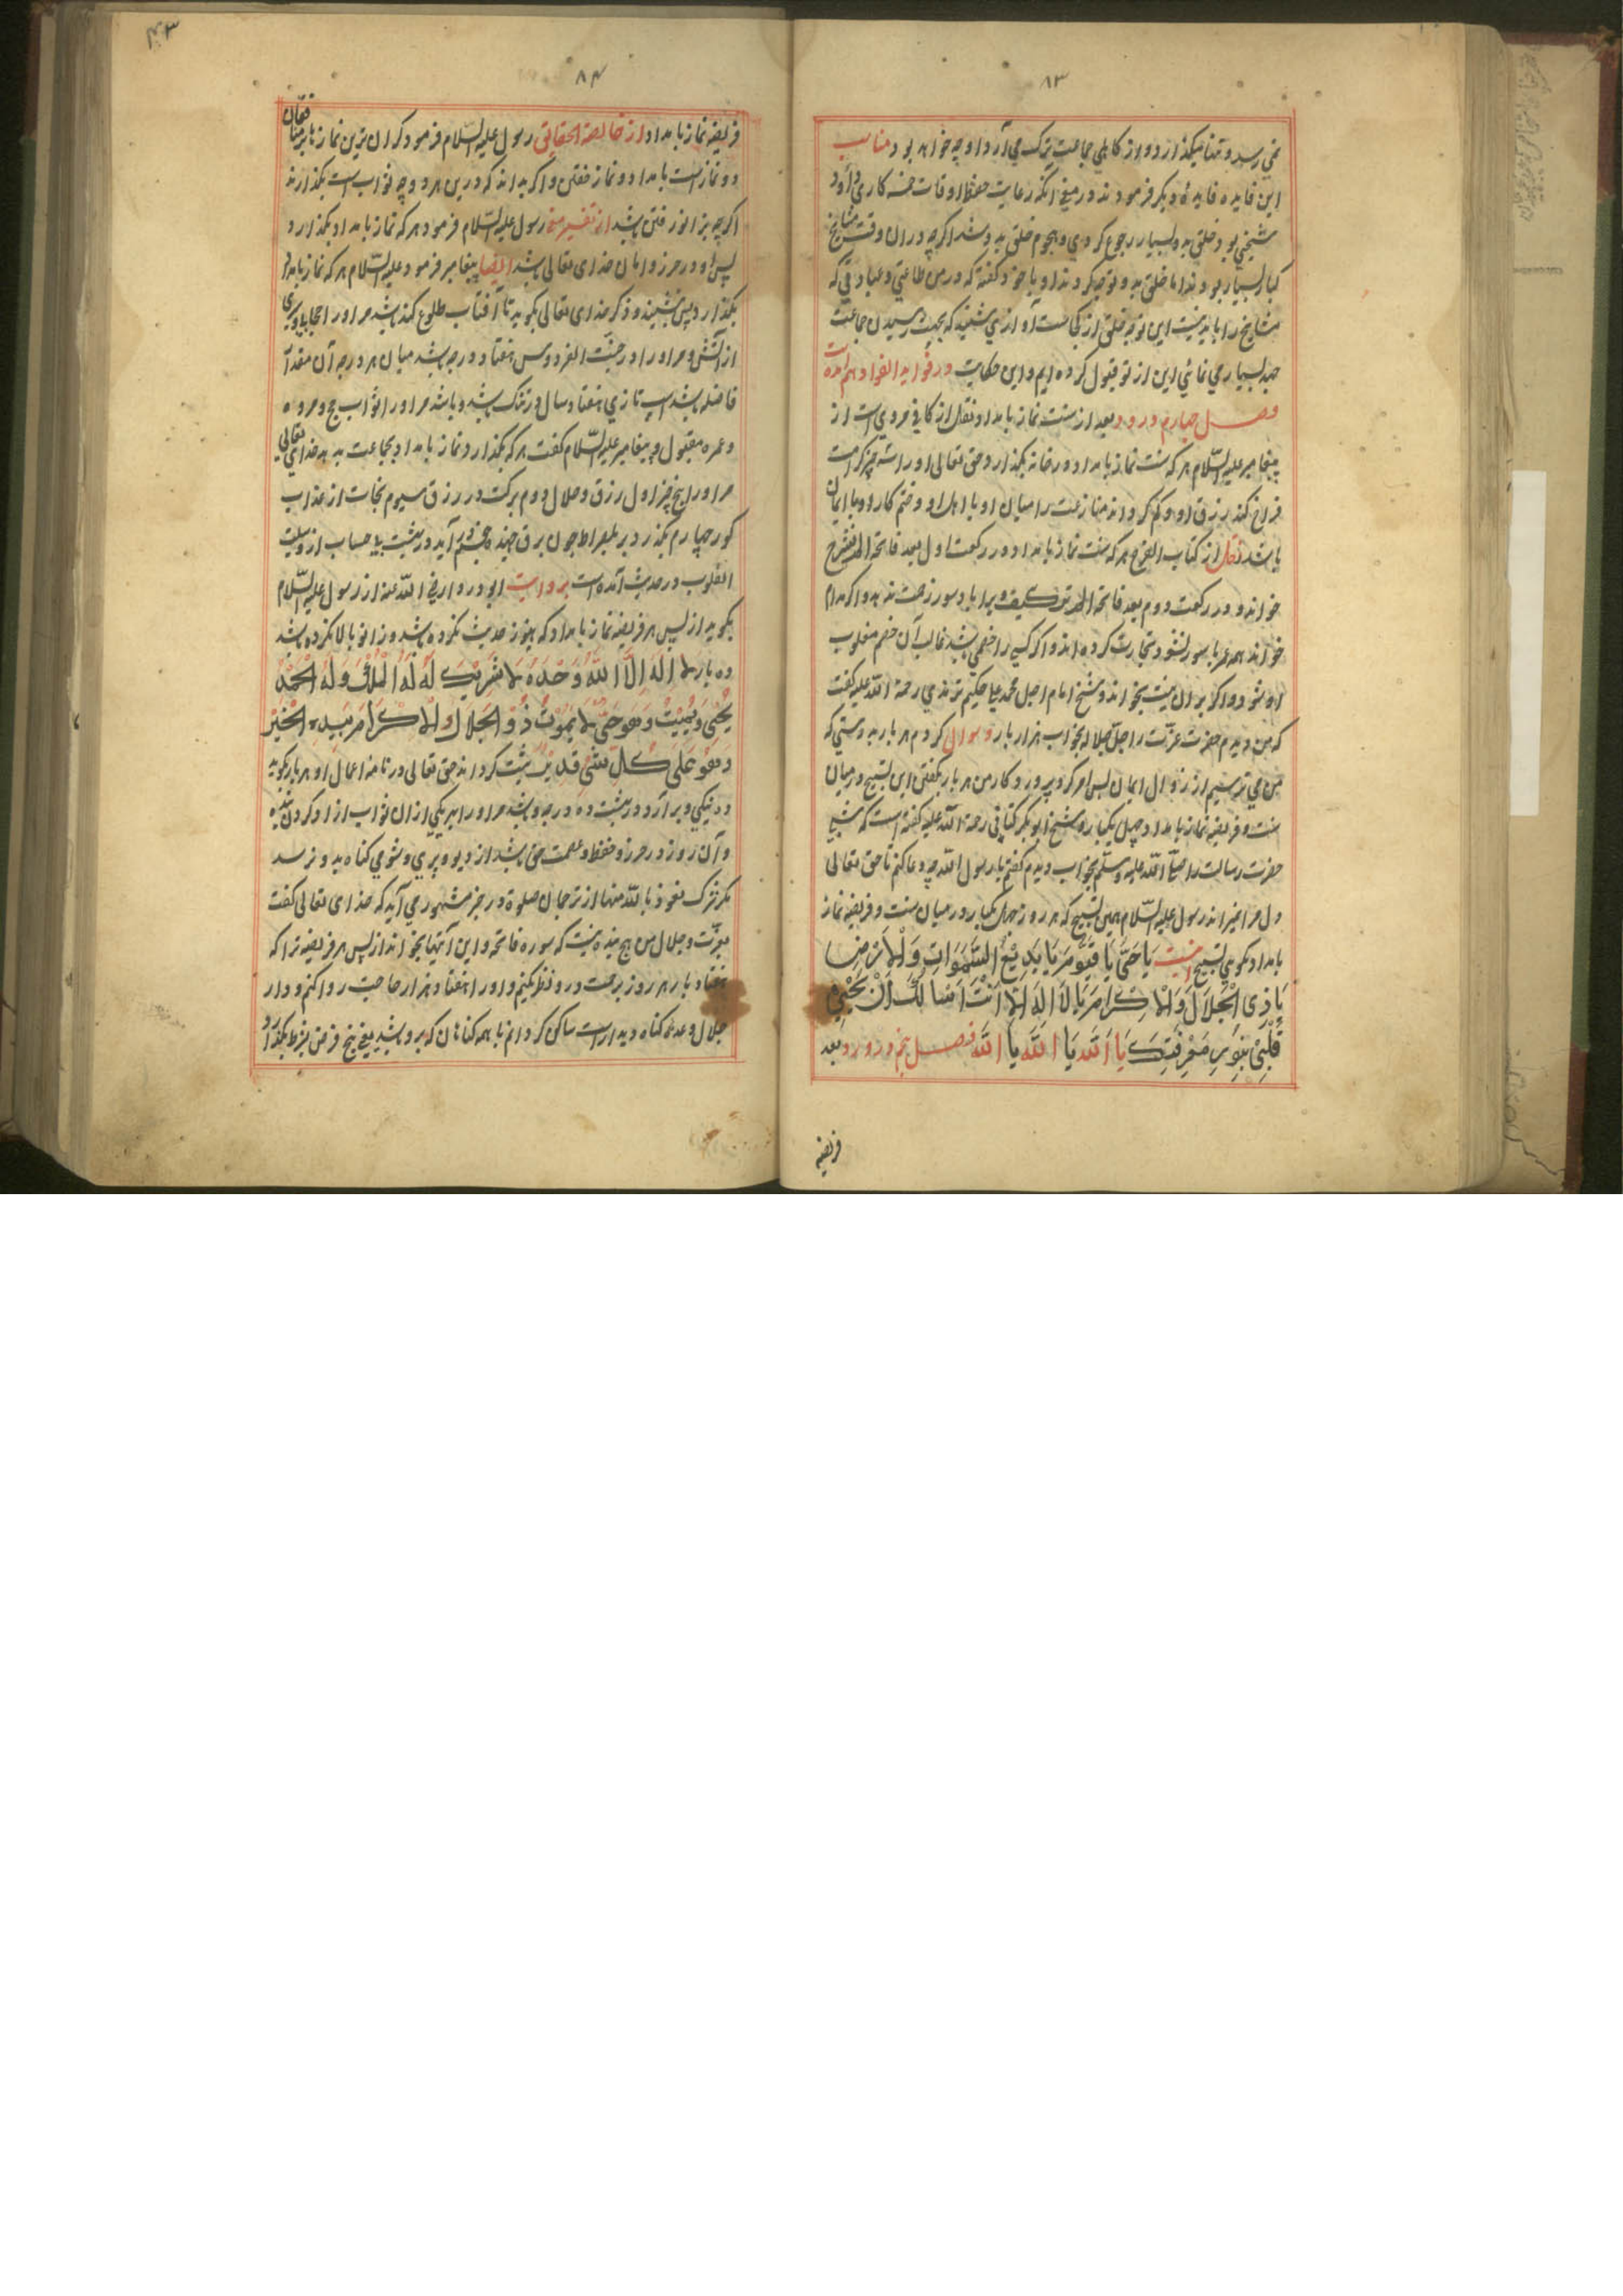 ۸۳
نمی رسد و تنها میگذارد و از کاهلی جماعت ترک می آرد او چه خواهد بود مناسب
این فایده فایدهٔ دیگر فرمودند در معنی آنکه رعایت حفظ اوقات خمسه کاری دارد
شیخی بود خلق بدو بسیار رجوع کردی و هجوم خلق بدو شد اگرچه در ان وقت مشایخ
کبار بسیار بودند اما خلق بدو توجه کردند او با خود گفته که در من طاعتی و عبادتی که
مشایخ را باید نیست این توجه خلق از کجاست آوازی شنید که بجهت رسیدن جماعت
جهد بسیار می نمائی این از تو قبول کرده ایم و این حکایت در فواید الفواد هم آمده است
فصل چهارم در ورد بعد از سنت نماز بامداد و نقل از کافی مروی است از
پیغامبر علیه السلام هر که سنت نماز بامداد در خانه بگذارد حق تعالی او را سه چیز کرامت
فراخ کند رزق او و کم گرداند منازعت را میان او و با اهل او و ختم کار او با ایمان
باشد نقل از کتاب الفرج هر که سنت نماز بامداد در رکعت اول بعد فاتحه الم نشرح
خواند و در رکعت دوم بعد فاتحه الم تر کیف ویرا باد سور زحمت ندهد و اگر مدام
خواند همه عمر باسور نشود و تجارت کرده اند و اگر کسی را خصمی باشد غالب آن خصم مغلوب
او شود و اگر بر ان نیت بخواند و شیخ امام اجل محمد علی حکیم ترمذی رحمة الله علیه گفت
که من دیدم حضرت عزت را جل جلاله بخواب هزار بار و سوال کردم هر بار بدرستی که
من می ترسیم از زوال ایمان پس امر کرد پروردگار من هر بار بگفتن این تسبیح در میان
سنت و فریضه نماز بامداد چهل و یکبار و شیخ ابوبکر کتانی رحمة الله علیه گفته است که شبی
حضرت رسالت را صلی الله علیه وسلم بخواب دیدم گفتم یا رسول الله چه دعا کنم تا حق تعالی
دل مرا نمیراند رسول علیه السلام همین تسبیح که هر روز چهل یکبار در میان سنت و فریضه نماز
بامداد بگوی تسبیح اینست یَا حَیُّ یَا قَیُّوْمُ یَا بَدِیْعَ السَّمٰوَاتِ وَالْاَرْضِ
یَا ذِی الْجَلَالِ وَالْاِکْرَامِ یَا لَا اِلٰهَ اِلَّا اَنْتَ اَسْاَلُكَ اَنْ تُحْیِیَ
قَلْبِیْ بِنُوْرِ مَعْرِفَتِكَ یَا اَللّٰه یَا اَللّٰه یَا اَللّٰه فصل پنجم در ورد بعد
فریضه
۸۴
فریضه نماز بامداد از خالصة الحقایق رسول علیه السلام فرمود گران ترین نمازها بر منافقان
دو نماز است بامداد و نماز خفتن و اگر بدانند که در این هر دو چه ثواب است بگذارند
اگرچه بزانو رفتن باشد از تفسیر رسول علیه السلام فرمود هر که نماز بامداد بگذارد
پس او در حرز و امان خدای تعالی باشد ایضا پیغامبر فرمود علیه السلام هر که نماز بامداد
بگذارد پس بنشیند و ذکر خدای تعالی گوید تا آفتاب طلوع کند باشد مر او را حجابی و پردهٔ
از آتش و مر او را در جنت الفردوس هفتاد درجه باشد میان هر درجه آن مقدار
فاضله باشد اسپ تازی هفتاد سال در تنگ باشد و باشد مر او را ثواب حج و عمره
و عمره مقبول و پیغامبر علیه السلام گفت هر که بگذارد نماز بامداد بجماعت بدهد خدای تعالی
مر او را پنج چیز اول رزق حلال دوم برکت در رزق سیوم نجات از عذاب
گور چهارم بگذرد بر پلصراط چون برق جهنده پنجم در آید در بهشت بی حساب از
القلوب در حدیث آمده است بروایت ابو دردا رضی الله عنه از رسول علیه السلام
بگوید از پس هر فریضه نماز بامداد که هنوز حدیث نکرده باشد و زانو بالا نکرده باشد
ده بار لَا اِلٰهَ اِلَّا اللّٰهُ وَحْدَهُ لَا شَرِیْكَ لَهُ لَهُ الْمُلْكُ وَلَهُ الْحَمْدُ
یُحْیِیْ وَیُمِیْتُ وَهُوَ حَیٌّ لَا یَمُوْتُ ذُو الْجَلَالِ وَالْاِکْرَامِ بِیَدِهِ الْخَیْرُ
وَهُوَ عَلٰی کُلِّ شَیْءٍ قَدِیْرٌ ثبت گرداند حق تعالی در نامه اعمال او هر بار بگوید
ده نیکی و بر آرد در بهشت ده درجه و باشد مر او را بهر یکی از ان ثواب آزاد کردن بنده
و آن روز در حرز و حفظ و عصمت حق باشد از دیو و پری و شومی گناه بدو نرسد
مگر شرک نعوذ بالله منها از ترجمان صلوة در خبر مشهور می آید که خدای تعالی گفت
بعزت و جلال من هیچ بنده نیست که سوره فاتحه و این آیتها بخواند از پس هر فریضه نماز الا که
هفتاد بار هر روز برحمت در و نظر بکنم و او را هفتاد هزار حاجت روا کنم و در دار
جلال و عده گناه دیدار است ساکن گردانم با همه گناهان که برو باشد یعنی پنج فرض بشرط بگذارد